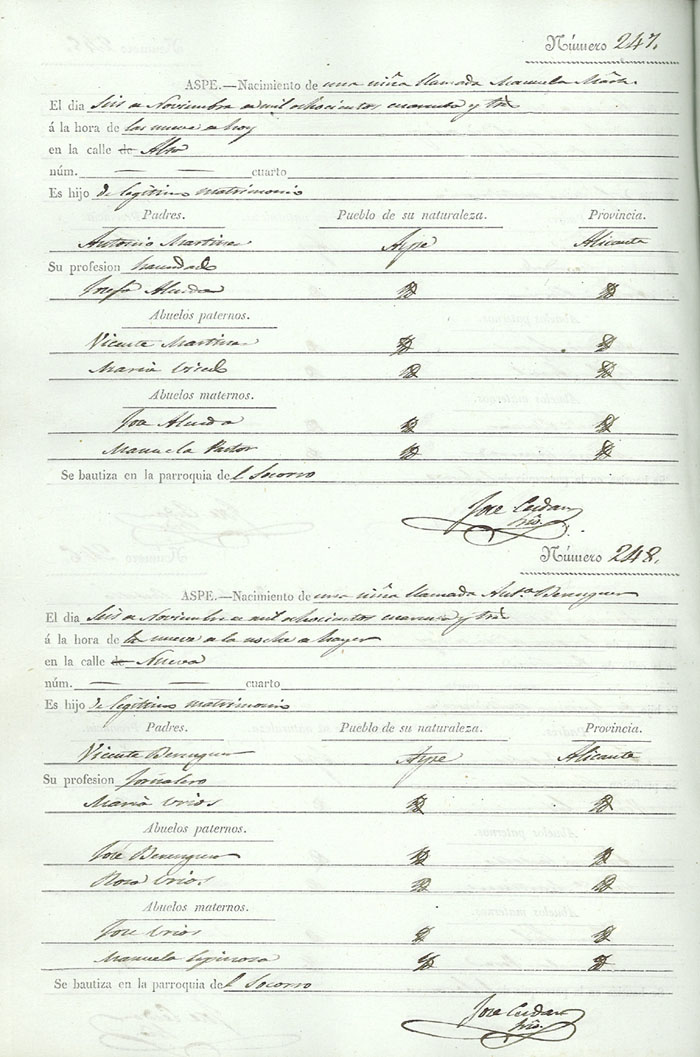 Número 247.
ASPE.—Nacimiento de una niña llamada Manuela
El dia seis de Noviembre de mil ochocientos cuarenta y tres
á la hora de las nueve de hoy
en la calle de Alta
núm. — — cuarto
Es hijo de legitimo matrimonio
Padres. Pueblo de su naturaleza. Provincia.
Antonio Martinez Aspe Alicante
Su profesion
Josefa Almodo Id Id
Abuelos paternos.
Vicente Martinez Id Id
Maria Id Id
Abuelos maternos.
José Id Id
Manuela Pastor Id Id
Se bautiza en la parroquia del Socorro
José
Número 248.
ASPE.—Nacimiento de una niña llamada Ant.ª Berenguer
El dia seis de Noviembre de mil ochocientos cuarenta y tres
á la hora de la nueve de la noche de hayer
en la calle de Nueva
núm. — — cuarto
Es hijo de legitimo matrimonio
Padres. Pueblo de su naturaleza. Provincia.
Vicente Berenguer Aspe Alicante
Su profesion Jornalero
Maria Urios Id Id
Abuelos paternos.
José Berenguer Id Id
Rosa Urios Id Id
Abuelos maternos.
José Urios Id Id
Manuela Espinosa Id Id
Se bautiza en la parroquia del Socorro
José